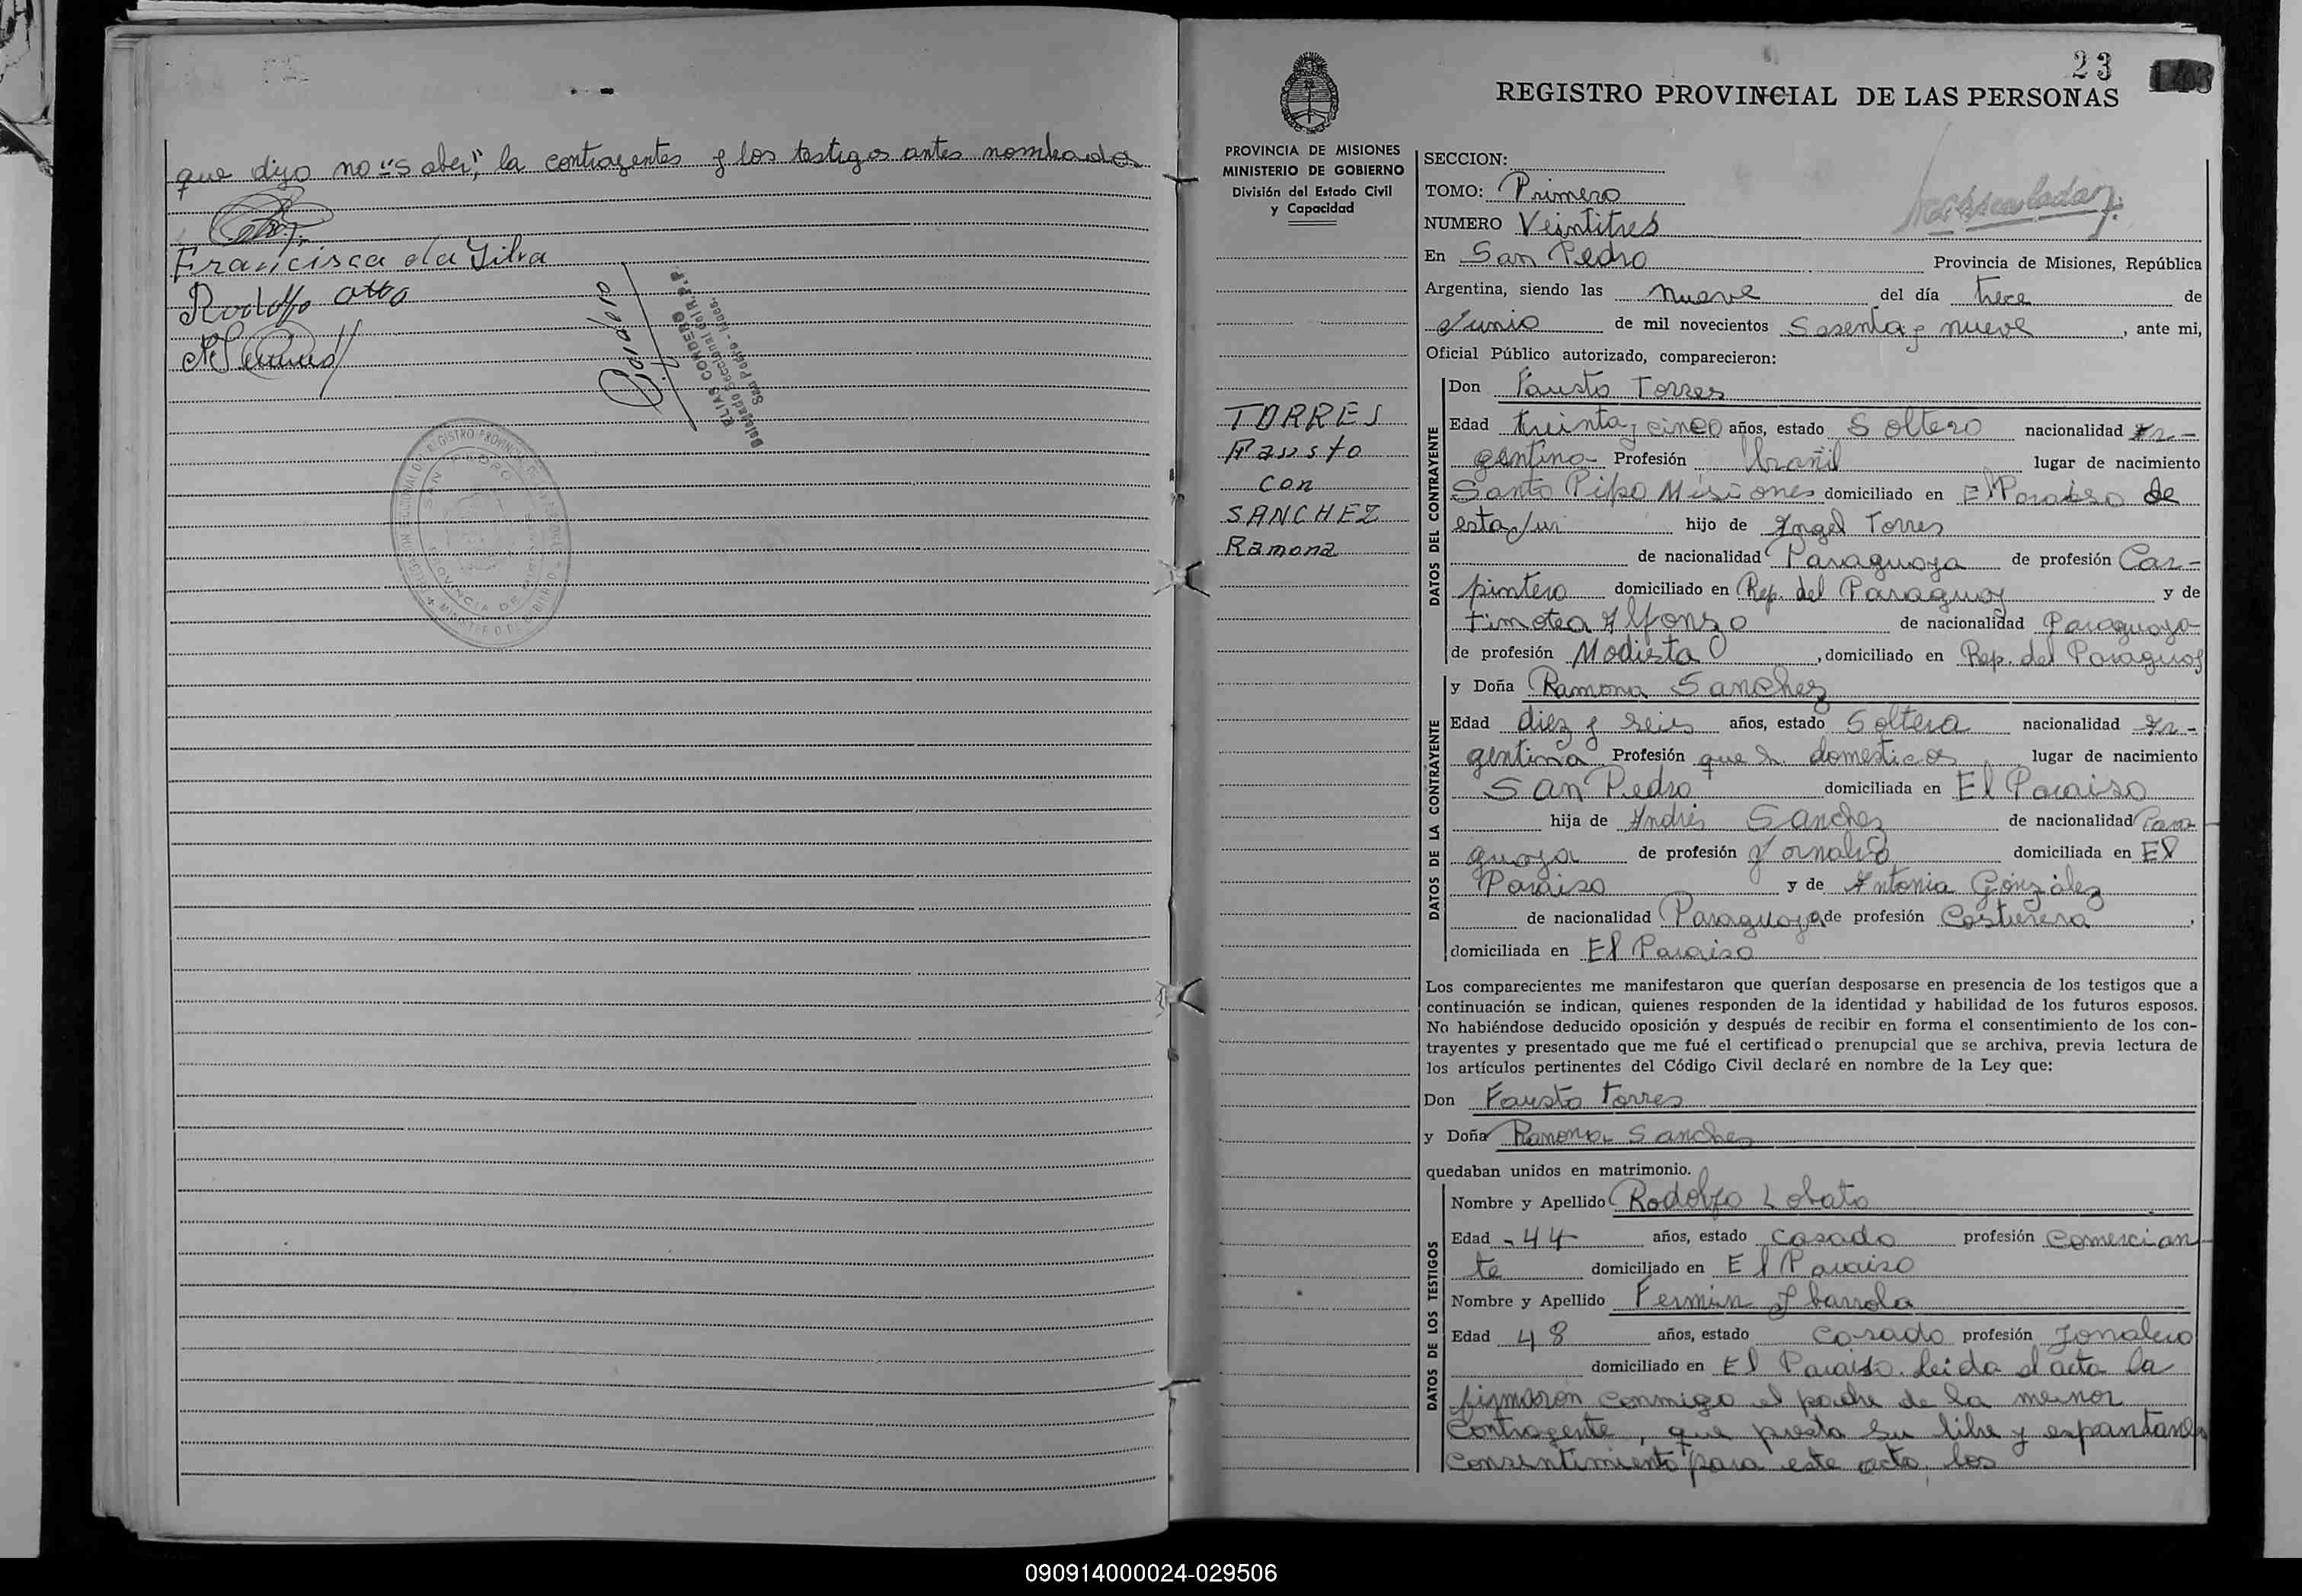 que dijo no "saber", la contrayentes y los testigos antes nombrados
Francisca da Silva
Rodolfo Otto
ELIAS CORDERO
Delegado Seccional del R.P.P.
San Pedro - Mnes.
SAN PEDRO
23
REGISTRO PROVINCIAL DE LAS PERSONAS
PROVINCIA DE MISIONES
MINISTERIO DE GOBIERNO
División del Estado Civil
y Capacidad
TORRES
Fausto
con
SANCHEZ
Ramona
SECCION:
TOMO: Primero
NUMERO Veintitres
En San Pedro Provincia de Misiones, República
Argentina, siendo las nueve del día trece de
Junio de mil novecientos Sesenta y nueve, ante mi,
Oficial Público autorizado, comparecieron:
DATOS DEL CONTRAYENTE
Don Fausto Torres
Edad treinta y cinco años, estado Soltero nacionalidad Ar-
gentina Profesión lbañil lugar de nacimiento
Santo Pipo Misiones domiciliado en El Paraiso de
esta jur hijo de Angel Torres
de nacionalidad Paraguaya de profesión Car-
pintero domiciliado en Rep. del Paraguay y de
Timotea Alfonzo de nacionalidad Paraguaya
de profesión Modista, domiciliado en Rep. del Paraguay
DATOS DE LA CONTRAYENTE
y Doña Ramona Sanchez
Edad diez y seis años, estado Soltera nacionalidad Ar-
gentina Profesión que h. domesticos lugar de nacimiento
San Pedro domiciliada en El Paraiso
hija de Andrés Sanchez de nacionalidad Para-
guaya de profesión Jornalero domiciliada en El
Paraiso y de Antonia González
de nacionalidad Paraguaya de profesión Costurera,
domiciliada en El Paraiso
Los comparecientes me manifestaron que querían desposarse en presencia de los testigos que a
continuación se indican, quienes responden de la identidad y habilidad de los futuros esposos.
No habiéndose deducido oposición y después de recibir en forma el consentimiento de los con-
trayentes y presentado que me fué el certificado prenupcial que se archiva, previa lectura de
los artículos pertinentes del Código Civil declaré en nombre de la Ley que:
Don Fausto Torres
y Doña Ramona Sanchez
quedaban unidos en matrimonio.
DATOS DE LOS TESTIGOS
Nombre y Apellido Rodolfo Lobato
Edad - 44 años, estado casado profesión Comercian-
te domiciliado en El Paraiso
Nombre y Apellido Fermin Ibarrola
Edad 48 años, estado Casado profesión Jornalero
domiciliado en El Paraiso. leida el acta la
firmaron conmigo el padre de la menor
contrayente, que presta su libre y espantaneo
consentimiento para este acto, los
090914000024-029506